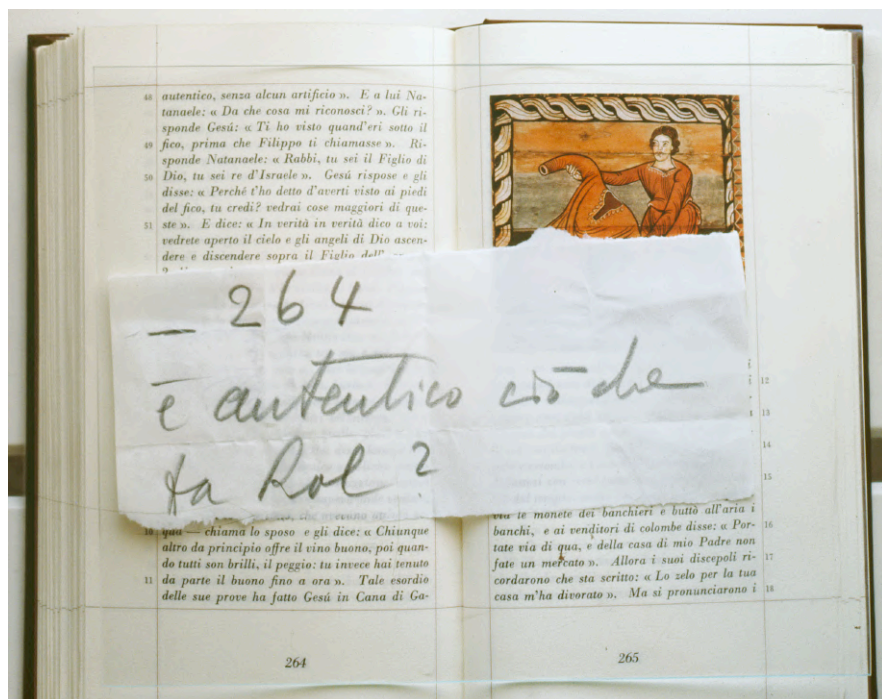 48 autentico, senza alcun artificio ». E a lui Na-
tanaele: « Da che cosa mi riconosci? ». Gli ri-
sponde Gesú: « Ti ho visto quand'eri sotto il
49 fico, prima che Filippo ti chiamasse ». Ri-
sponde Natanaele: « Rabbi, tu sei il Figlio di
50 Dio, tu sei re d'Israele ». Gesú rispose e gli
disse: « Perché t'ho detto d'averti visto ai piedi
del fico, tu credi? vedrai cose maggiori di que-
51 ste ». E dice: « In verità in verità dico a voi:
vedrete aperto il cielo e gli angeli di Dio ascen-
dere e discendere sopra il Figlio dell'
— 264
è autentico ciò che
fa Rol?
10 qua — chiama lo sposo e gli dice: « Chiunque
altro da principio offre il vino buono, poi quan-
do tutti son brilli, il peggio: tu invece hai tenuto
11 da parte il buono fino a ora ». Tale esordio
delle sue prove ha fatto Gesú in Cana di Ga-
264
12
13
14
15
via le monete dei banchieri e buttò all'aria i
banchi, e ai venditori di colombe disse: « Por- 16
tate via di qua, e della casa di mio Padre non
fate un mercato ». Allora i suoi discepoli ri- 17
cordarono che sta scritto: « Lo zelo per la tua
casa m'ha divorato ». Ma si pronunciarono i 18
265